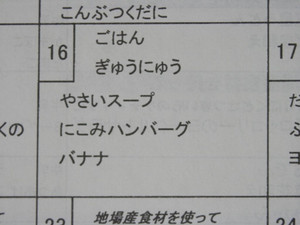 こんぶつくだに
16
ごはん
ぎゅうにゅう
17
やさいスープ
くの
にこみハンバーグ
バナナ
地場産食材を使って